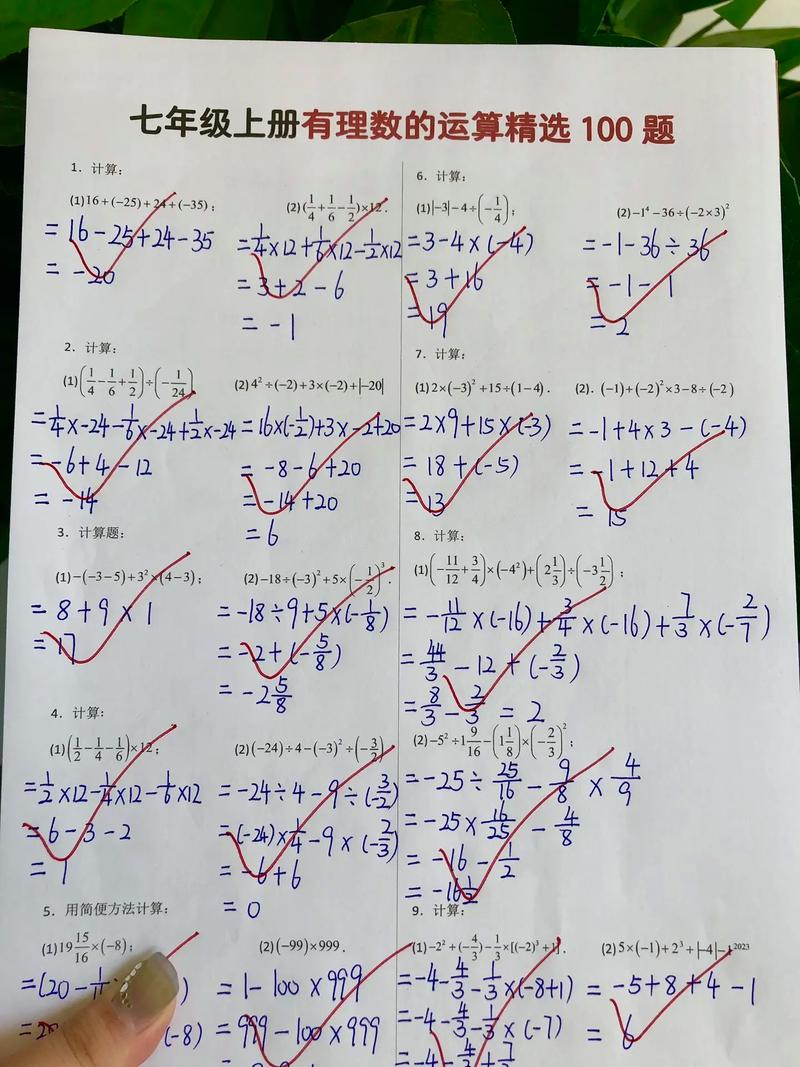 七年级上册有理数的运算精选 100 题
1. 计算:
(1)16+(−25)+24+(−35);
= 16 − 25 + 24 − 35
= −20
(2)(1/4+1/6−1/2)×12.
= 1/4×12 + 1/6×12 − 1/2×12
= 3 + 2 − 6
= −1
2. 计算:
(1)(1/4−1/6+1/2)÷(−1/24)
= 1/4×−24 − 1/6×−24 + 1/2×−24
= −6 + 4 − 12
= −14
(2)4²÷(−2)+3×(−2)+|−20|
= 16×(−1/2)+3×−2+20
= −8−6+20
= −14+20
= 6
3. 计算题:
(1)−(−3−5)+3²×(4−3);
= 8+9×1
= 17
(2)−18÷(−3)²+5×(−1/2)³.
= −18÷9+5×(−1/8)
= −2+(−5/8)
= −2 5/8
4. 计算:
(1)(1/2−1/4−1/6)×12;
= 1/2×12−1/4×12−1/6×12
= 6−3−2
= 1
(2)(−24)÷4−(−3)²÷(−3/2)
= −24÷4−9÷(−3/2)
= (−24)×1/4−9×(−2/3)
= −6+6
= 0
5. 用简便方法计算:
(1)19 15/16×(−8);
= (20−1/
(−8)
(2)(−99)×999.
= 1−100×999
= 999−100×999
6. 计算:
(1)|−3|−4÷(−1/4);
= 3−4×(−4)
= 3+16
= 19
(2)−1⁴−36÷(−2×3)²
= −1−36÷36
= −1−1
= 2
7. 计算:
(1)2×(−3)²+15÷(1−4).
= 2×9+15×(−3)
= 18+(−5)
= 13
(2). (−1)+(−2)²×3−8÷(−2)
= −1+4×3−(−4)
= −1+12+4
= 15
8. 计算:
(1)(−11/12+3/4)×(−4²)+(2 1/3)÷(−3 1/2);
= −11/12×(−16)+3/4×(−16)+7/3×(−2/7)
= 44/3−12+(−2/3)
= 8/3−2/3 = 2
(2)−5²÷1 9/16−(1 1/8)×(−2/3)²;
= −25÷25/16−9/8×4/9
= −25×16/25−4/8
= −16−1/2
= −16 1/2
9. 计算:
(1)−2²+(−4/3)−1/3×[(−2)³+1].
= −4−4/3−1/3×(−8+1)
= −4−4/3−1/3×(−7)
= −4−4/3+7/3
(2)5×(−1)+2³+|−4|−1²⁰²³
= −5+8+4−1
= 6